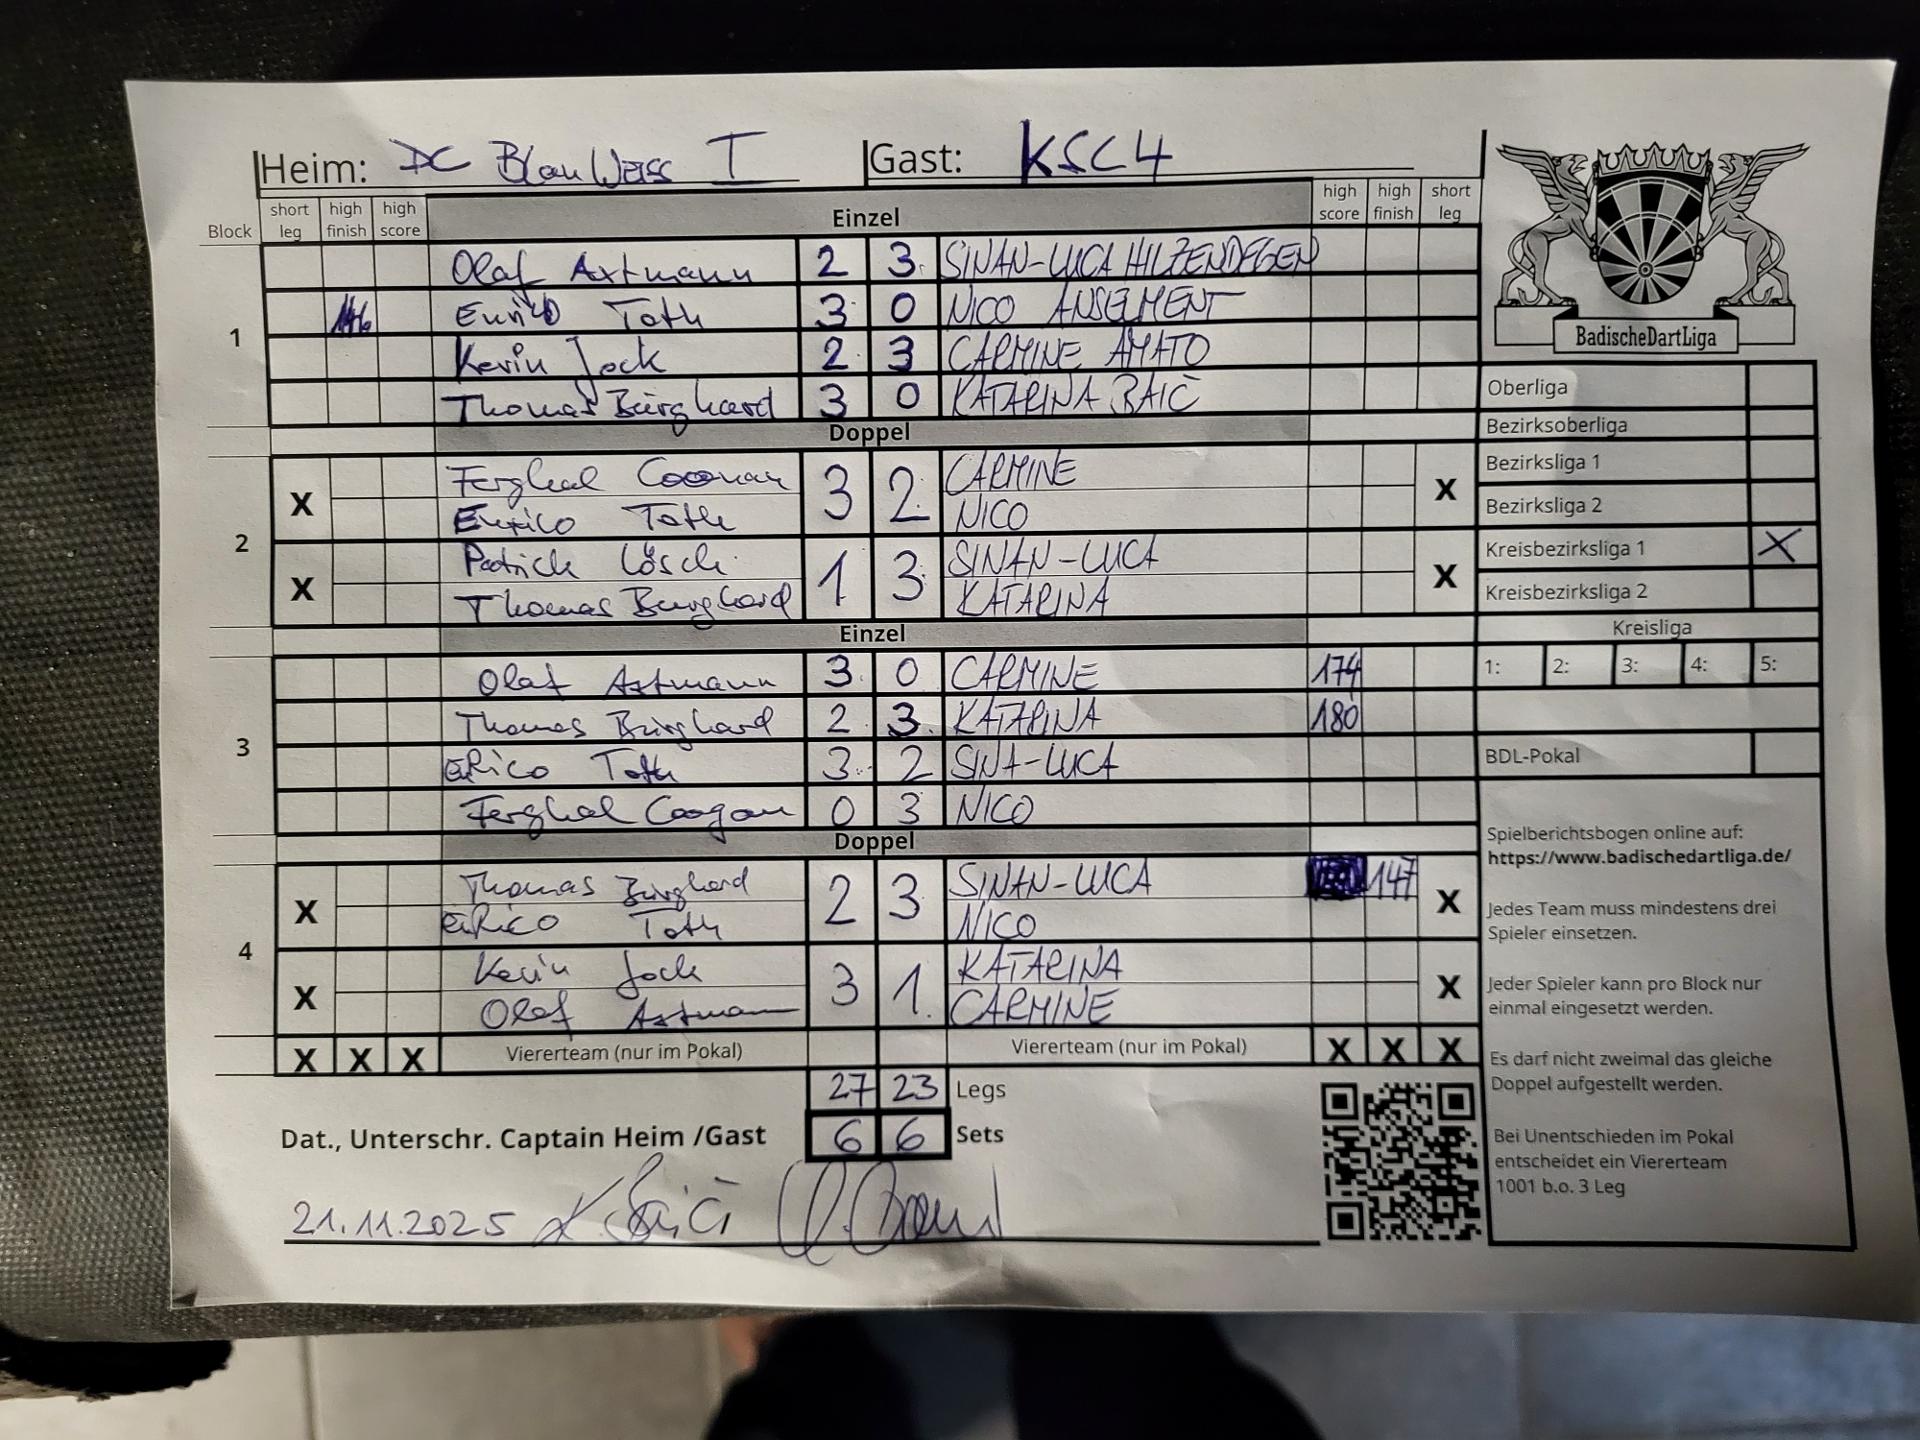 Heim: DC Blau Weiss I Gast: KSC4
Block short leg high finish high score Einzel high score high finish short leg
1
Olaf Axtmann 2 3 SINAN-LUCA HILZENDEGEN
146 Enrico Toth 3 0 NICO ANSELMENT
Kevin Jock 2 3 CARMINE AMATO
Thomas Burghard 3 0 KATARINA BAIĆ
Doppel
2
X Ferghal Coonan 3 2 CARMINE X
Enrico Toth NICO
X Patrick Lösch 1 3 SINAN-LUCA X
Thomas Burghard KATARINA
Einzel
3
Olaf Axtmann 3 0 CARMINE 174
Thomas Burghard 2 3 KATARINA 180
Erico Toth 3 2 SINA-LUCA
Ferghal Coogan 0 3 NICO
Doppel
4
X Thomas Burghard 2 3 SINAN-LUCA 147 X
Erico Toth NICO
X Kevin Jock 3 1 KATARINA X
Olaf Axtmann CARMINE
X X X Viererteam (nur im Pokal) Viererteam (nur im Pokal) X X X
27 23 Legs
Dat., Unterschr. Captain Heim /Gast 6 6 Sets
21.11.2025 K. Baić
BadischeDartLiga
Oberliga
Bezirksoberliga
Bezirksliga 1
Bezirksliga 2
Kreisbezirksliga 1 X
Kreisbezirksliga 2
Kreisliga
1: 2: 3: 4: 5:
BDL-Pokal
Spielberichtsbogen online auf:
https://www.badischedartliga.de/
Jedes Team muss mindestens drei
Spieler einsetzen.
Jeder Spieler kann pro Block nur
einmal eingesetzt werden.
Es darf nicht zweimal das gleiche
Doppel aufgestellt werden.
Bei Unentschieden im Pokal
entscheidet ein Viererteam
1001 b.o. 3 Leg